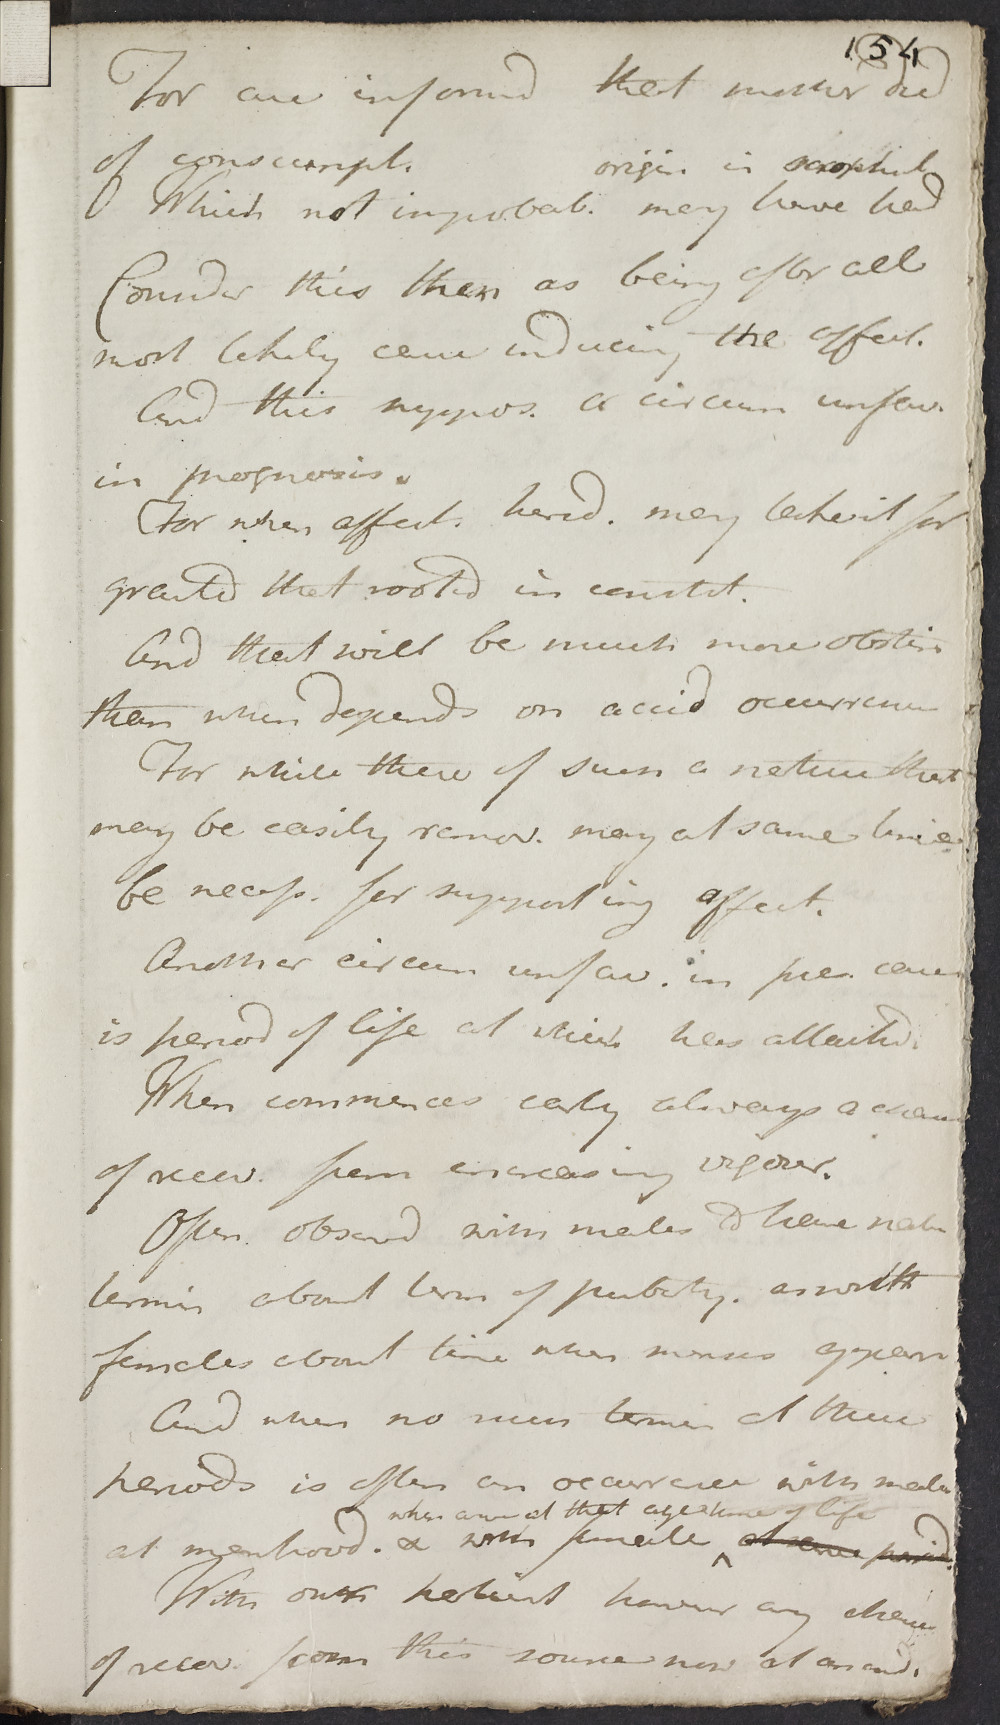 154
For are informd that mother died
of consumpt. origin in scrophul
Which not improbab. may have had
Consider this then as being after all
most likely cause inducing the affect.
And this suppos. a circum unfav.
in prognosis.
For when affect. hered. may take it for
granted that rooted in constit.
And that will be much more obstin
than when depends on accid occurrence
For while these of such a nature that
may be easily remov. may at same time
be necess. for supporting affect.
Another circum unfav. in pres. case
is period of life at which has attackd.
When commences early always a chance
of recov. from increasing vigour.
Often observd with males to have natu
termin about term of puberty. as with
females about time when menses appear
And when no such termin at these
periods is often an occurrence with males
when arrive at that age & time of life
at manhood. & with female at same period.
With our patient however any chance
of recov. from this source now at an end.